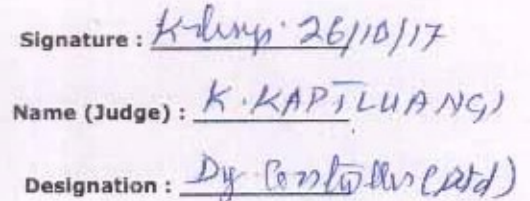 Signature : 26/10/17
Name (Judge) : K. KAPTLUANGI
Designation : Dy Controller (Rtd)